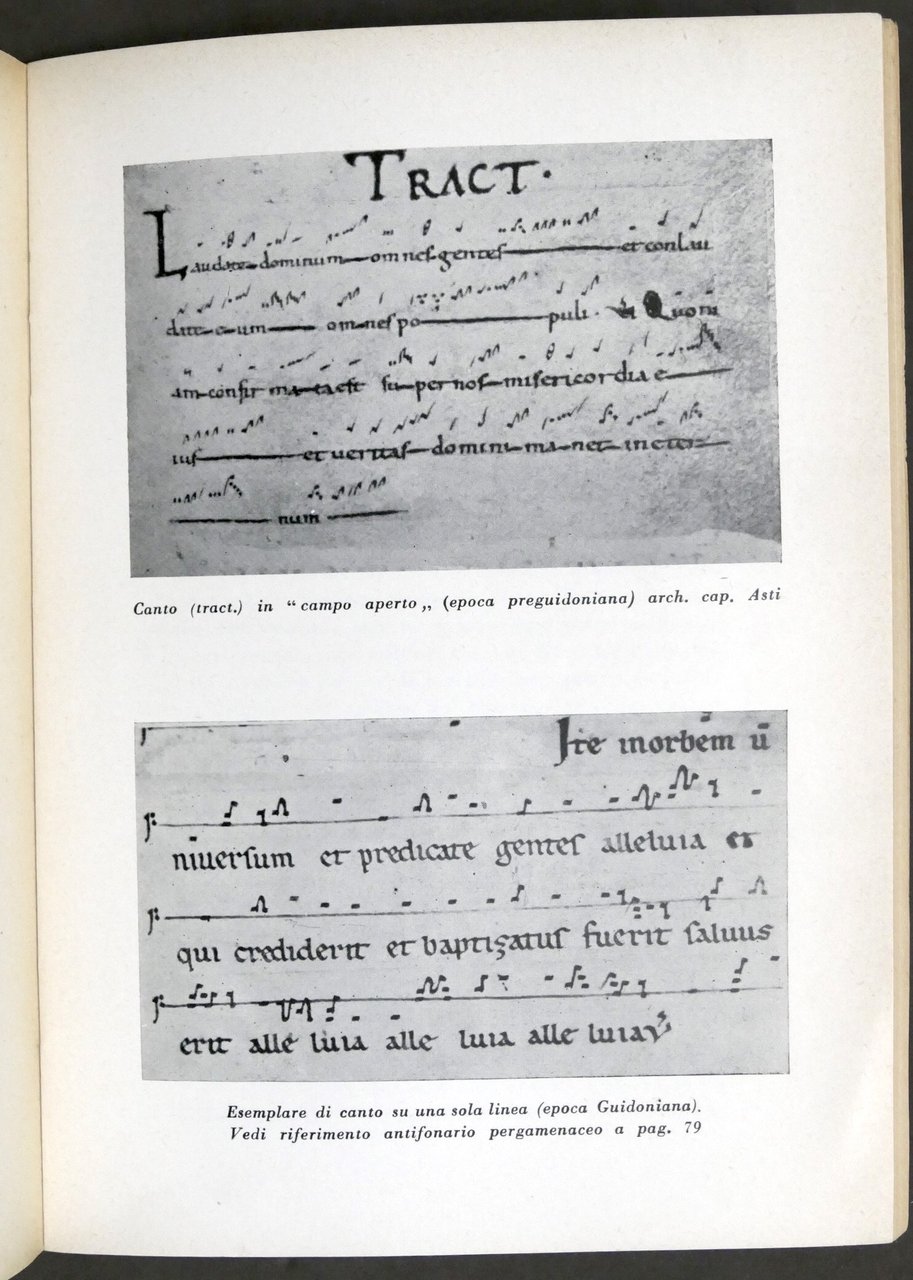 TRACT.
Laudate dominum omnes gentes et conlau
date eum omnes populi. Quoni
am confirmata est super nos misericordia e
ius et veritas domini manet in eter
num
Canto (tract.) in “ campo aperto „ (epoca preguidoniana) arch. cap. Asti
Ite in orbem ū
niuersum et predicate gentes alleluia et
qui crediderit et baptizatus fuerit saluus
erit alle luia alle luia alle luia
Esemplare di canto su una sola linea (epoca Guidoniana).
Vedi riferimento antifonario pergamenaceo a pag. 79